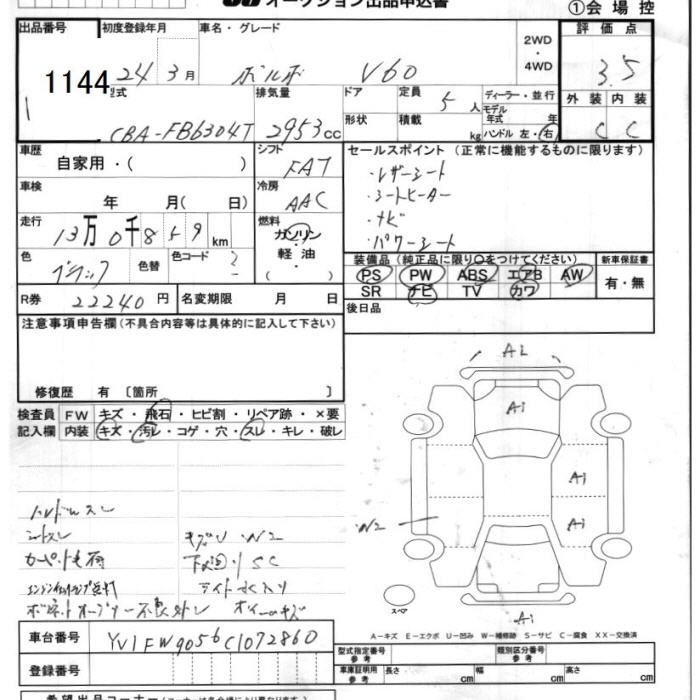 オークション出品申込書 ①会場控
出品番号 初度登録年月 車名・グレード 2WD・4WD 評価点
1144 24年 3月 ボルボ V60 3.5
型式 排気量 ドア 定員 5人 ディーラー・並行 外装 内装
CBA-FB6304T 2953cc 形状 積載 kg モデル年式 年 ハンドル 左・右 C C
車歴 自家用・( ) シフト FAT セールスポイント (正常に機能するものに限ります)
車検 年 月( 日) 冷房 AAC ・レザーシート
・シートヒーター
走行 13万0千8 59km 燃料 ガソリン・軽油・( ) ・ナビ
・パワーシート
色 ブラック 色替 色コード 装備品(純正品に限り○をつけてください) 新車保証書
PS PW ABS エアB AW 有・無
R券 22240円 名変期限 月 日 SR ナビ TV カワ
後日品
注意事項申告欄(不具合内容等は具体的に記入して下さい)
修復歴 有 〔箇所 〕
検査員 FW キズ・飛石・ヒビ割・リペア跡・×要
記入欄 内装 キズ・汚レ・コゲ・穴・スレ・キレ・破レ
A1
A1
A1
A1
W2
A1
スペア
ハンドルスレ
シートスレ キズU・W2
下回りSC
エンジンチェックランプ点灯
A-キズ E-エクボ U-凹み W-補修跡 S-サビ C-腐食 XX-交換済
車台番号 YV1FW9056C1072860 型式指定番号 参考 類別区分番号 参考
登録番号 車庫証明用 参考 長さ cm 幅 cm 高さ cm